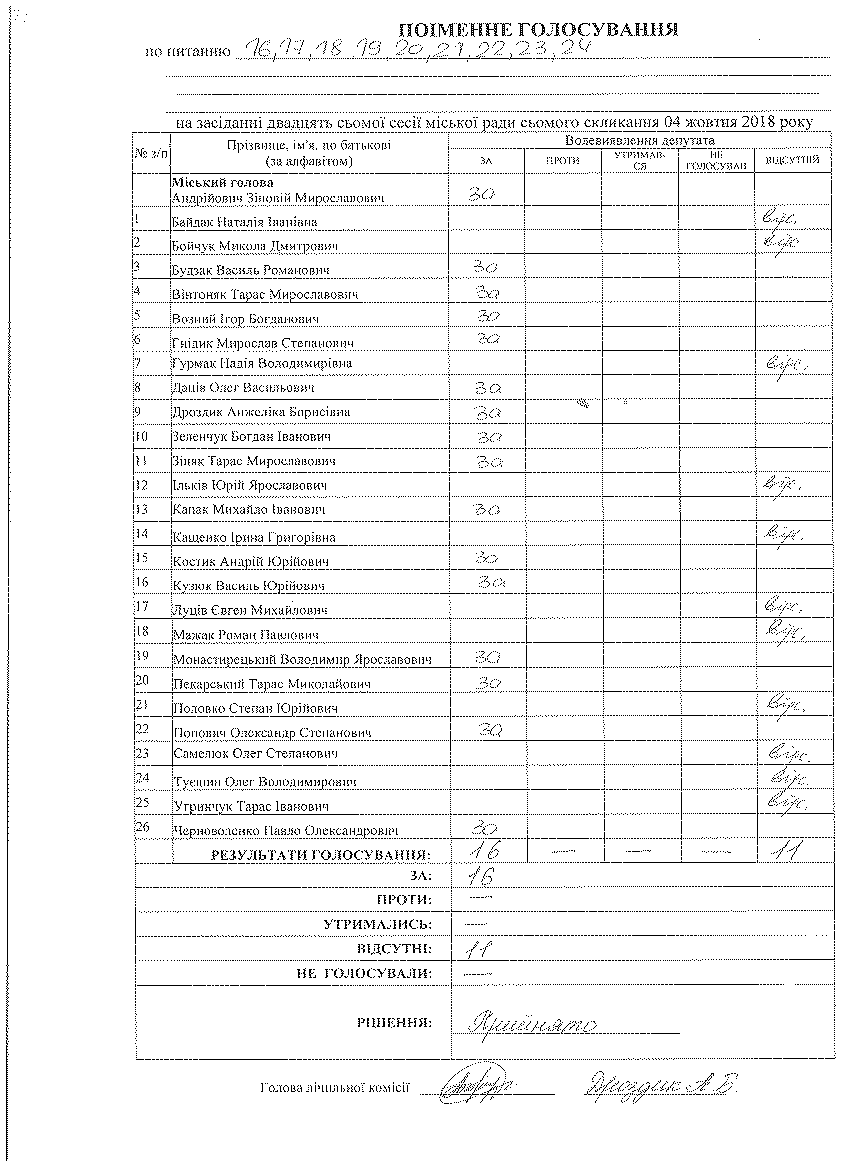 ПОІМЕННЕ ГОЛОСУВАННЯ
по питанню 16,17,18,19,20,21,22,23,24
на засіданні двадцять сьомої сесії міської ради сьомого скликання 04 жовтня 2018 року
№ з/п Прізвище, ім’я, по батькові (за алфавітом) Волевиявлення депутата
ЗА ПРОТИ УТРИМАВ-СЯ НЕ ГОЛОСУВАВ ВІДСУТНІЙ
Міський голова
Андрійович Зіновій Мирославович за
1 Байдак Наталія Іванівна відс.
2 Бойчук Микола Дмитрович відс
3 Будзак Василь Романович за
4 Вінтоняк Тарас Мирославович за
5 Возний Ігор Богданович за
6 Гнідик Мирослав Степанович за
7 Гурмак Надія Володимирівна відс.
8 Даців Олег Васильович за
9 Дроздик Анжеліка Борисівна за
10 Зеленчук Богдан Іванович за
11 Зіняк Тарас Мирославович за
12 Ільків Юрій Ярославович відс.
13 Капак Михайло Іванович за
14 Кащенко Ірина Григорівна відс.
15 Костик Андрій Юрійович за
16 Кузюк Василь Юрійович за
17 Луців Євген Михайлович відс.
18 Мажак Роман Павлович відс.
19 Монастирецький Володимир Ярославович за
20 Пекарський Тарас Миколайович за
21 Половко Степан Юрійович відс.
22 Попович Олександр Степанович за
23 Самелюк Олег Степанович відс.
24 Туєшин Олег Володимирович відс.
25 Угринчук Тарас Іванович відс.
26 Черноволенко Павло Олександрович за
РЕЗУЛЬТАТИ ГОЛОСУВАННЯ: 16 — — — 11
ЗА: 16
ПРОТИ: —
УТРИМАЛИСЬ: —
ВІДСУТНІ: 11
НЕ ГОЛОСУВАЛИ: —
РІШЕННЯ: Прийнято
Голова лічильної комісії Дроздик А Б.